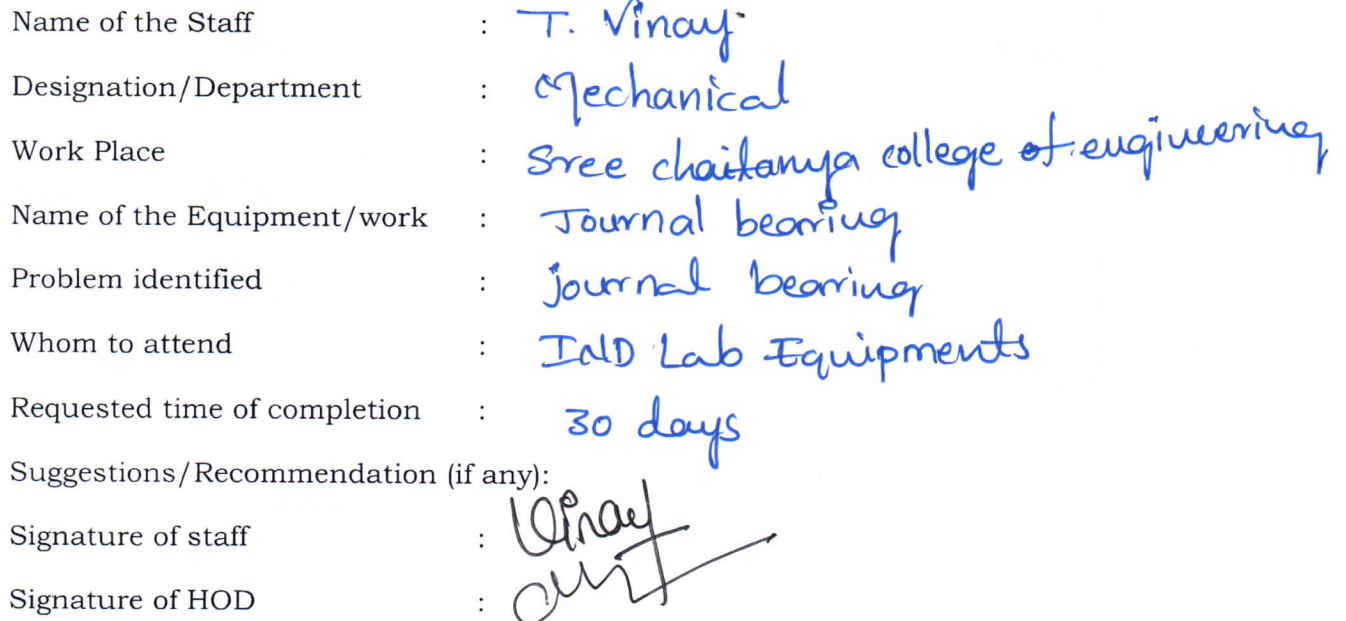 Name of the Staff : T. Vinay
Designation/Department : Mechanical
Work Place : Sree chaitanya college of engineering
Name of the Equipment/work : Journal bearing
Problem identified : journal bearing
Whom to attend : IND Lab Equipments
Requested time of completion : 30 days
Suggestions/Recommendation (if any):
Signature of staff : Vinay
Signature of HOD :